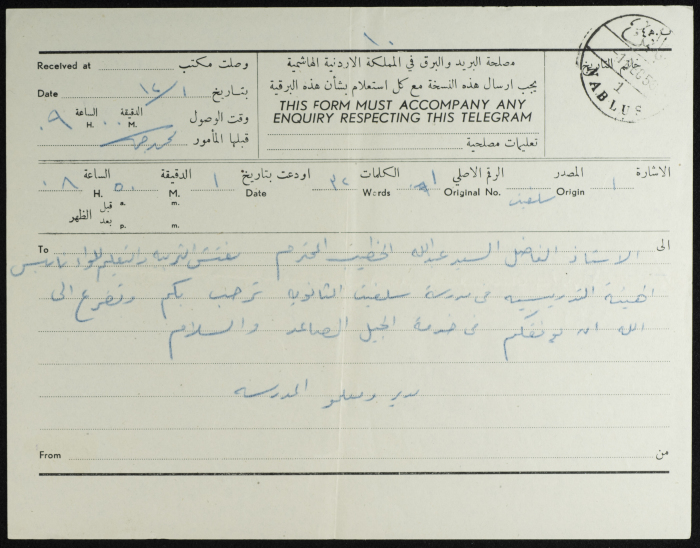 ١٠
وصلت مكتب Received at
بتاريخ ١٢/١ Date
وقت الوصول الدقيقة M. الساعة ٩ H.
قبلها المأمور
مصلحة البريد والبرق في المملكة الاردنية الهاشمية
يجب ارسال هذه النسخة مع كل استعلام بشأن هذه البرقية
THIS FORM MUST ACCOMPANY ANY
ENQUIRY RESPECTING THIS TELEGRAM
تعليمات مصلحية
ختم التاريخ
NABLUS
الاشارة ١ المصدر Origin سلفيت الرقم الاصلي Original No. ٩١ الكلمات Words ٣٢ اودعت بتاريخ Date ١ الدقيقة M. ٥٠ الساعة H. ٠٨
قبل a. m.
بعد p. m.
الظهر
To الى
الاستاذ الفاضل السيد عبدالله الخطيب المحترم مفتش التربيه والتعليم للواء نابلس
الهيئة التدريسيه في مدرسة سلفيت الثانويه ترحب بكم وتضرع الى
الله ان يوفقكم في خدمة الجيل الصاعد والسلام
مدير ومعلمو المدرسه
From من